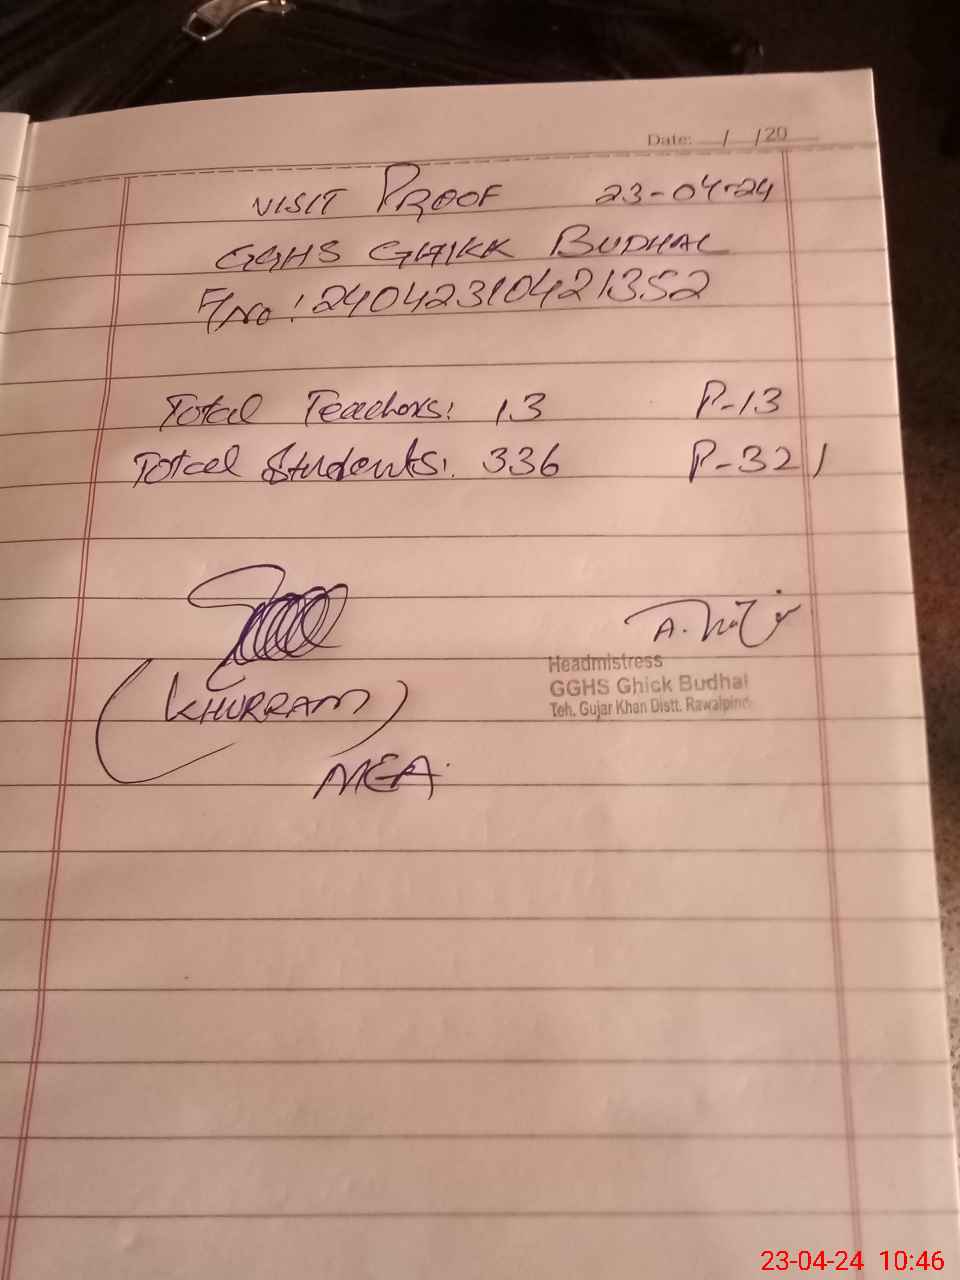 Date: / /20
VISIT PROOF 23-04-24
GGHS GHIKK BUDHAL
F/No: 24042310421352
Total Teachers: 13 P-13
Total Students: 336 P-321
Headmistress
GGHS Ghick Budhal
Teh. Gujar Khan Distt. Rawalpindi
(KHURRAM)
MEA.
23-04-24 10:46